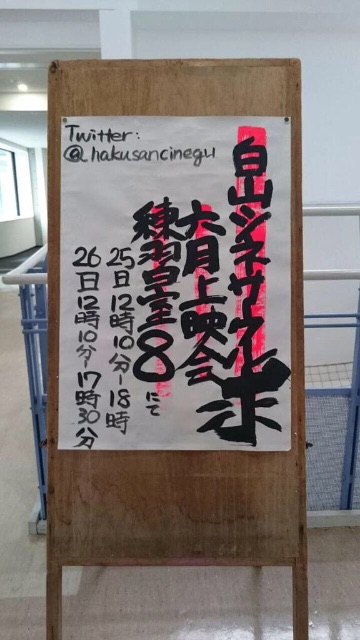 Twitter:
@_hakusancinegu
白山シネサークル
六月上映会
練習室8にて
25日12時10分-18時
26日12時10分-17時30分